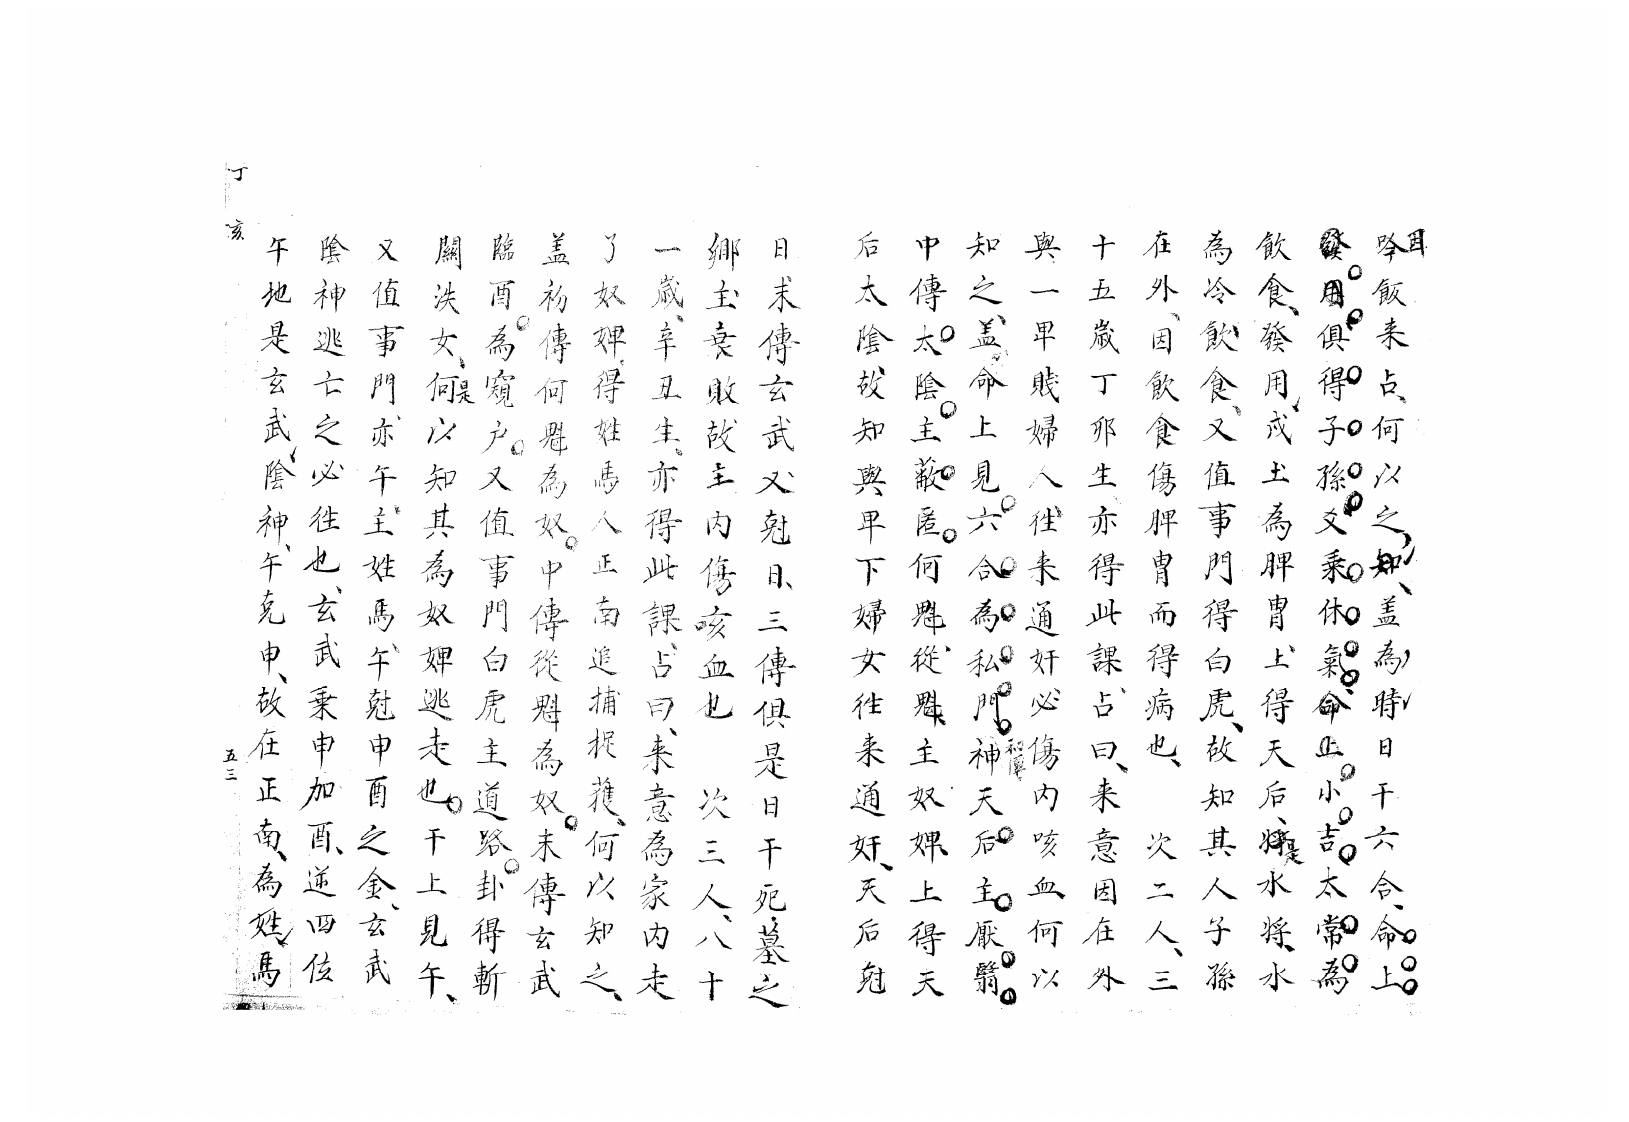 耳
吟飯来占何以之知、盖為時日干六合、命上
發用俱得子孫爻乗休氣命上小吉太常為
飲食、發用戌土為脾胃上得天后、將是水將、水
為冷飲食、又值事門得白虎、故知其人子孫
在外、因飲食傷脾胃而得病也、　次二人、三
十五歲丁卯生亦得此課占曰、来意因在外
與一卑賤婦人往来通奸必傷内咳血何以
知之、盖命上見六合為私門神天后主厭翳
中傳太陰主蔽匿何魁從魁、主奴婢上得天
后太陰故知與卑下婦女往来通奸、天后尅
日末傳玄武又尅日、三傳俱是日干死墓之
鄉主衰敗故主内傷咳血也　次三人、八十
一歲、辛丑生、亦得此課、占曰、来意為家内走
了奴婢得姓馬人正南追捕捉獲、何以知之、
盖初傳何魁為奴中傳從魁為奴末傳玄武
臨酉為窺户又值事門白虎主道路卦得斬
關泆女、何是以知其為奴婢逃走也干上見午、
又值事門亦午主姓馬午尅申酉之金、玄武
陰神逃亡之必往也、玄武乗申加酉、逆四位
午地是玄武陰神、午克申、故在正南、為姓馬
丁亥
五三